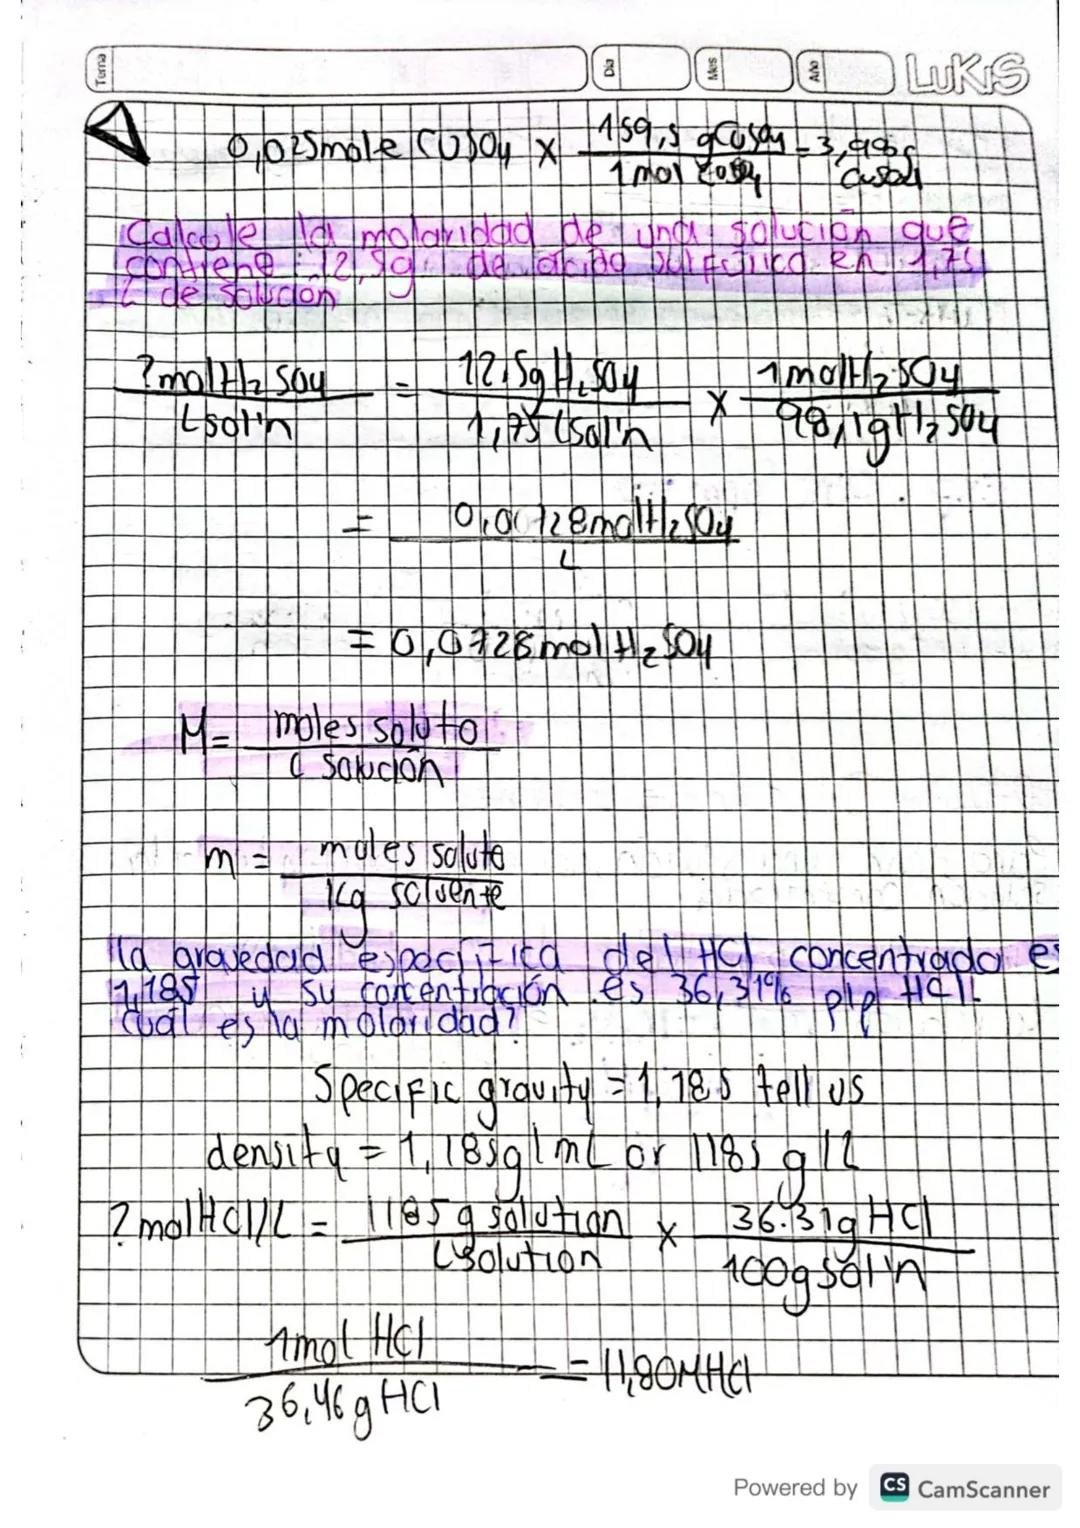 Tema Dia Mes Año LUKIS
0,025mole CuSO4 x 159,5 gCuSO4 / 1mol CuSO4 = 3,998g CuSO4
Calcule la molaridad de una solución que
contiene 12,5g de acido sulfurico en 1,75
L de solucion
?molH2SO4 / Lsol'n = 12,5gH2SO4 / 1,75 Lsol'n x 1molH2SO4 / 98,1gH2SO4
= 0,00728molH2SO4 / L
= 0,0728molH2SO4
M= moles soluto / L solución
m= moles solute / Kg solvente
la gravedad especifica del HCl concentrado es
1,185 y su concentración es 36,31% p/p HCl.
Cual es la molaridad?
Specific gravity = 1,185 tell us
density = 1,185g/mL or 1185 g/L
?molHCl/L = 1185g solution / Lsolution x 36.31g HCl / 100g sol'n
1mol HCl / 36,46g HCl = 11,80MHCl
Powered by CS CamScanner